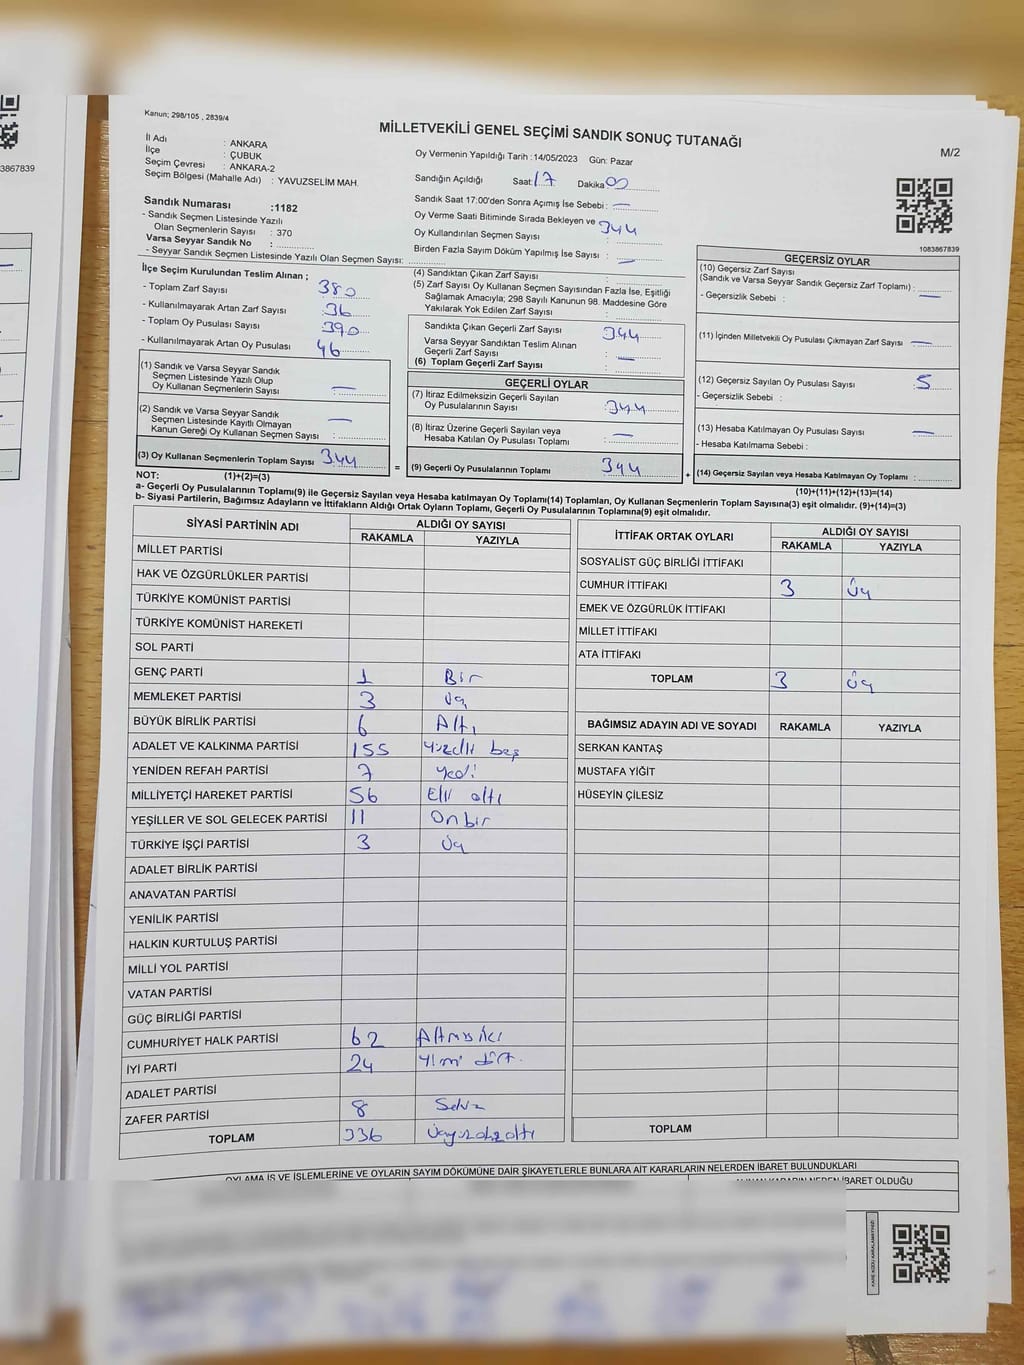 3867839
Kanun; 298/105 , 2839/4
MİLLETVEKİLİ GENEL SEÇİMİ SANDIK SONUÇ TUTANAĞI
M/2
İl Adı : ANKARA
İlçe : ÇUBUK
Seçim Çevresi : ANKARA-2
Seçim Bölgesi (Mahalle Adı) : YAVUZSELİM MAH.
Oy Vermenin Yapıldığı Tarih :14/05/2023 Gün: Pazar
Sandığın Açıldığı Saat: 17 Dakika 00
Sandık Saat 17:00'den Sonra Açımış İse Sebebi : —
Oy Verme Saati Bitiminde Sırada Bekleyen ve
Oy Kullandırılan Seçmen Sayısı : 344
Birden Fazla Sayım Döküm Yapılmış İse Sayısı : —
Sandık Numarası :1182
- Sandık Seçmen Listesinde Yazılı
Olan Seçmenlerin Sayısı : 370
Varsa Seyyar Sandık No :
- Seyyar Sandık Seçmen Listesinde Yazılı Olan Seçmen Sayısı:
1083867839
İlçe Seçim Kurulundan Teslim Alınan ;
- Toplam Zarf Sayısı 380
- Kullanılmayarak Artan Zarf Sayısı 36
- Toplam Oy Pusulası Sayısı 390
- Kullanılmayarak Artan Oy Pusulası 46
(1) Sandık ve Varsa Seyyar Sandık
Seçmen Listesinde Yazılı Olup
Oy Kullanan Seçmenlerin Sayısı : —
(2) Sandık ve Varsa Seyyar Sandık
Seçmen Listesinde Kayıtlı Olmayan
Kanun Gereği Oy Kullanan Seçmen Sayısı : —
(3) Oy Kullanan Seçmenlerin Toplam Sayısı 344
(1)+(2)=(3)
(4) Sandıktan Çıkan Zarf Sayısı :
(5) Zarf Sayısı Oy Kullanan Seçmen Sayısından Fazla İse, Eşitliği
Sağlamak Amacıyla; 298 Sayılı Kanunun 98. Maddesine Göre
Yakılarak Yok Edilen Zarf Sayısı :
Sandıkta Çıkan Geçerli Zarf Sayısı 344
Varsa Seyyar Sandıktan Teslim Alınan
Geçerli Zarf Sayısı : —
(6) Toplam Geçerli Zarf Sayısı :
GEÇERLİ OYLAR
(7) İtiraz Edilmeksizin Geçerli Sayılan
Oy Pusulalarının Sayısı : 344
(8) İtiraz Üzerine Geçerli Sayılan veya
Hesaba Katılan Oy Pusulası Toplamı : —
= (9) Geçerli Oy Pusulalarının Toplamı 344 +
GEÇERSİZ OYLAR
(10) Geçersiz Zarf Sayısı
(Sandık ve Varsa Seyyar Sandık Geçersiz Zarf Toplamı) :
- Geçersizlik Sebebi : —
(11) İçinden Milletvekili Oy Pusulası Çıkmayan Zarf Sayısı —
(12) Geçersiz Sayılan Oy Pusulası Sayısı 5
- Geçersizlik Sebebi :
(13) Hesaba Katılmayan Oy Pusulası Sayısı —
- Hesaba Katılmama Sebebi :
(14) Geçersiz Sayılan veya Hesaba Katılmayan Oy Toplamı :
(10)+(11)+(12)+(13)=(14)
NOT:
a- Geçerli Oy Pusulalarının Toplamı(9) ile Geçersiz Sayılan veya Hesaba katılmayan Oy Toplamı(14) Toplamları, Oy Kullanan Seçmenlerin Toplam Sayısına(3) eşit olmalıdır. (9)+(14)=(3)
b- Siyasi Partilerin, Bağımsız Adayların ve İttifakların Aldığı Ortak Oyların Toplamı, Geçerli Oy Pusulalarının Toplamına(9) eşit olmalıdır.
SİYASİ PARTİNİN ADI ALDIĞI OY SAYISI
RAKAMLA YAZIYLA
MİLLET PARTİSİ
HAK VE ÖZGÜRLÜKLER PARTİSİ
TÜRKİYE KOMÜNİST PARTİSİ
TÜRKİYE KOMÜNİST HAREKETİ
SOL PARTİ
GENÇ PARTİ 1 Bir
MEMLEKET PARTİSİ 3 Üç
BÜYÜK BİRLİK PARTİSİ 6 Altı
ADALET VE KALKINMA PARTİSİ 155 Yüzelli beş
YENİDEN REFAH PARTİSİ 7 Yedi
MİLLİYETÇİ HAREKET PARTİSİ 56 Elli altı
YEŞİLLER VE SOL GELECEK PARTİSİ 11 Onbir
TÜRKİYE İŞÇİ PARTİSİ 3 Üç
ADALET BİRLİK PARTİSİ
ANAVATAN PARTİSİ
YENİLİK PARTİSİ
HALKIN KURTULUŞ PARTİSİ
MİLLİ YOL PARTİSİ
VATAN PARTİSİ
GÜÇ BİRLİĞİ PARTİSİ
CUMHURİYET HALK PARTİSİ 62 Altmışiki
İYİ PARTİ 24 Yirmi dört.
ADALET PARTİSİ
ZAFER PARTİSİ 8 Sekiz
TOPLAM 336 Üçyüzotuzaltı
İTTİFAK ORTAK OYLARI ALDIĞI OY SAYISI
RAKAMLA YAZIYLA
SOSYALİST GÜÇ BİRLİĞİ İTTİFAKI
CUMHUR İTTİFAKI 3 Üç
EMEK VE ÖZGÜRLÜK İTTİFAKI
MİLLET İTTİFAKI
ATA İTTİFAKI
TOPLAM 3 Üç
BAĞIMSIZ ADAYIN ADI VE SOYADI RAKAMLA YAZIYLA
SERKAN KANTAŞ
MUSTAFA YİĞİT
HÜSEYİN ÇİLESİZ
TOPLAM
OYLAMA İŞ VE İŞLEMLERİNE VE OYLARIN SAYIM DÖKÜMÜNE DAİR ŞİKAYETLERLE BUNLARA AİT KARARLARIN NELERDEN İBARET BULUNDUKLARI
ALINAN KARARIN NEDEN İBARET OLDUĞU
KARE KODU KARALAMAYINIZ!